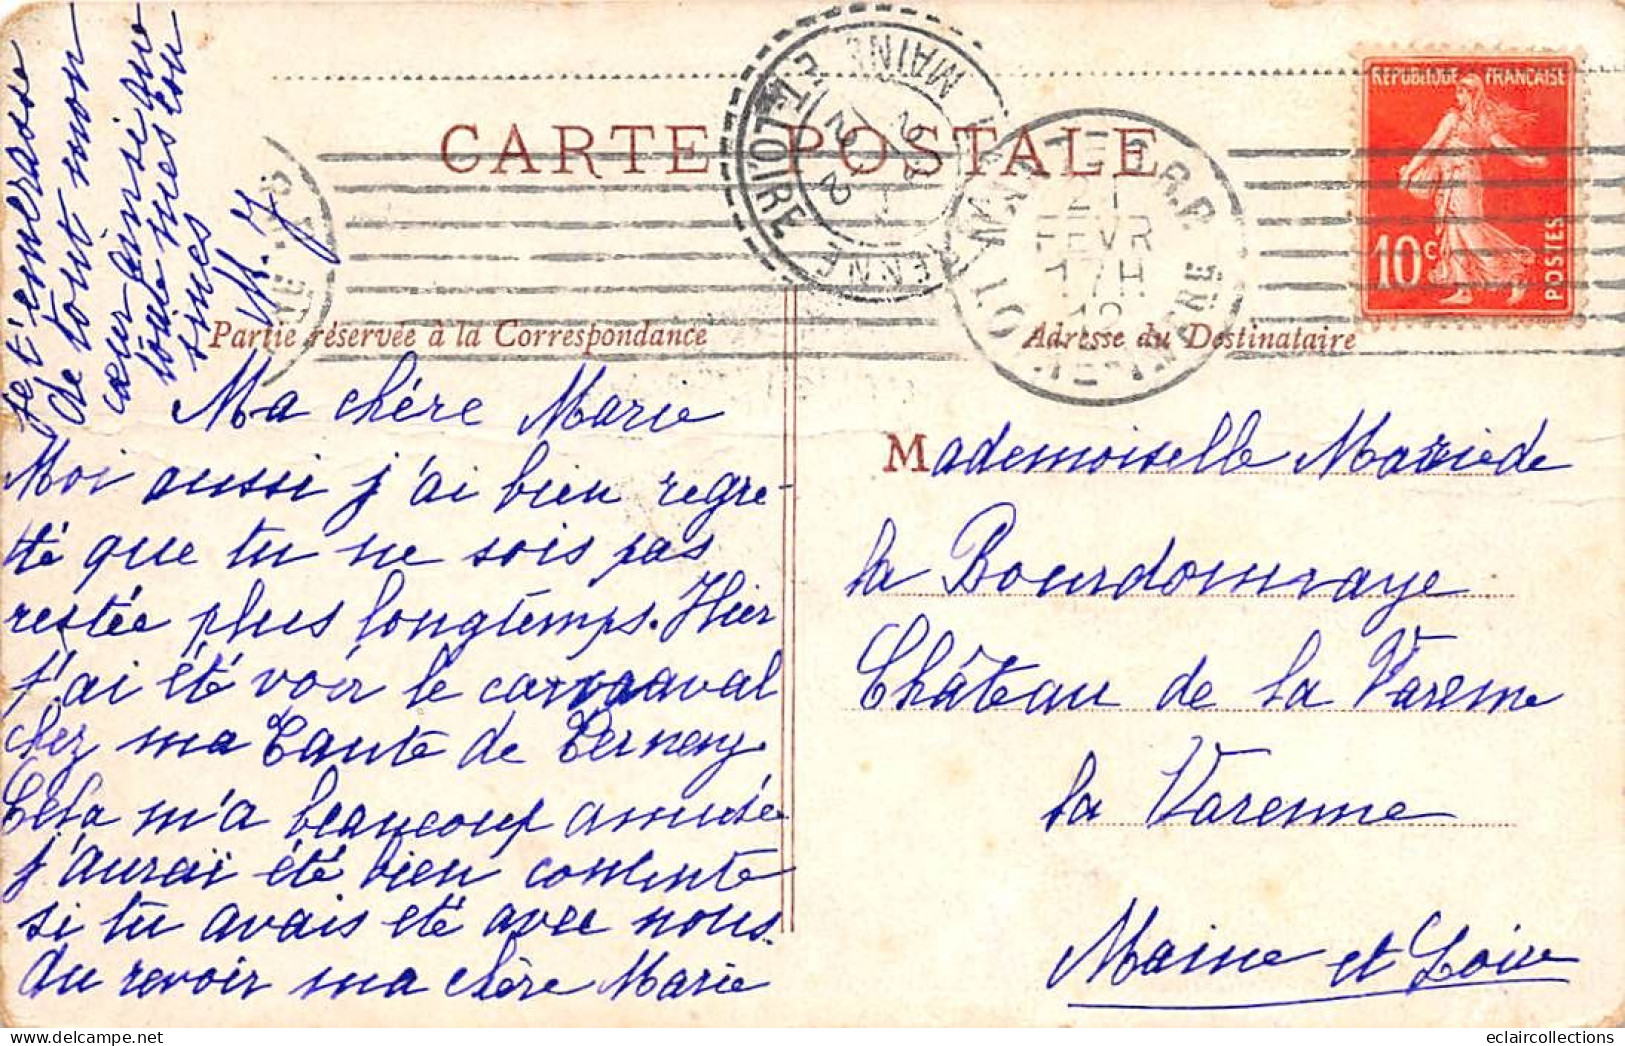 CARTE POSTALE
REPUBLIQUE FRANÇAISE
10c
POSTES
MAINE ET LOIRE
21
FEVR
17H
12
Partie réservée à la Correspondance
Adresse du Destinataire
Ma chère Marie
Moi aussi j'ai bien regre-
tté que tu ne sois pas
restée plus longtemps. Hier
j'ai été voir le carnaval
chez ma Tante de
Cela m'a beaucoup amusée
j'aurai été bien contente
si tu avais été avec nous.
Au revoir ma chère Marie
je t'embrasse
de tout mon
cœur ainsi que
toute mes cou
sines
M. J
Mademoiselle Marie de
la Bourdonnaye
Château de la Varenne
la Varenne
Maine et Loire
eclaircollections